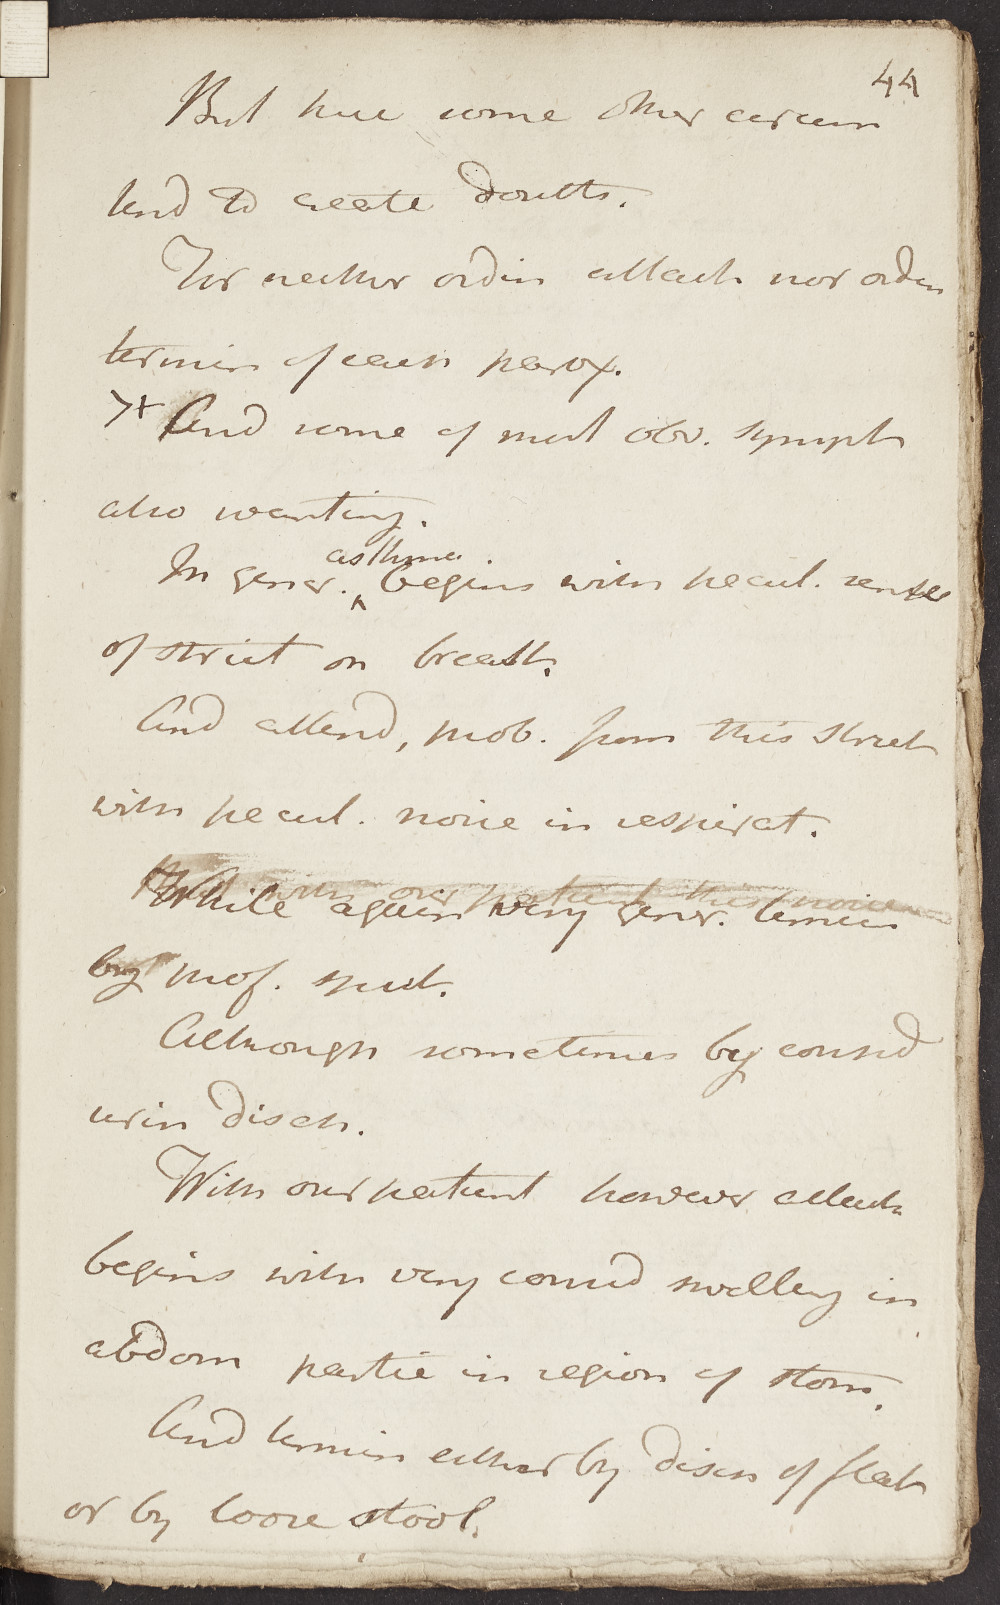 44
But here some other circum
tend to create doubts.
For neither ordin attack nor ordin
termin of each parox.
7+ And some of most obv. sympt
also wanting.
In gener. asthma begins with pecul. sense
of strict on breast.
And attend, prob. from this strict
with pecul. noise in respirat.
with our patient this noise
While again very gener. termin
by prof. sput.
Although sometimes by consid
urin disch.
With our patient however attack
begins with very consid swelling in
abdom partic in region of stom.
And termin either by disch of flat
or by loose stool.